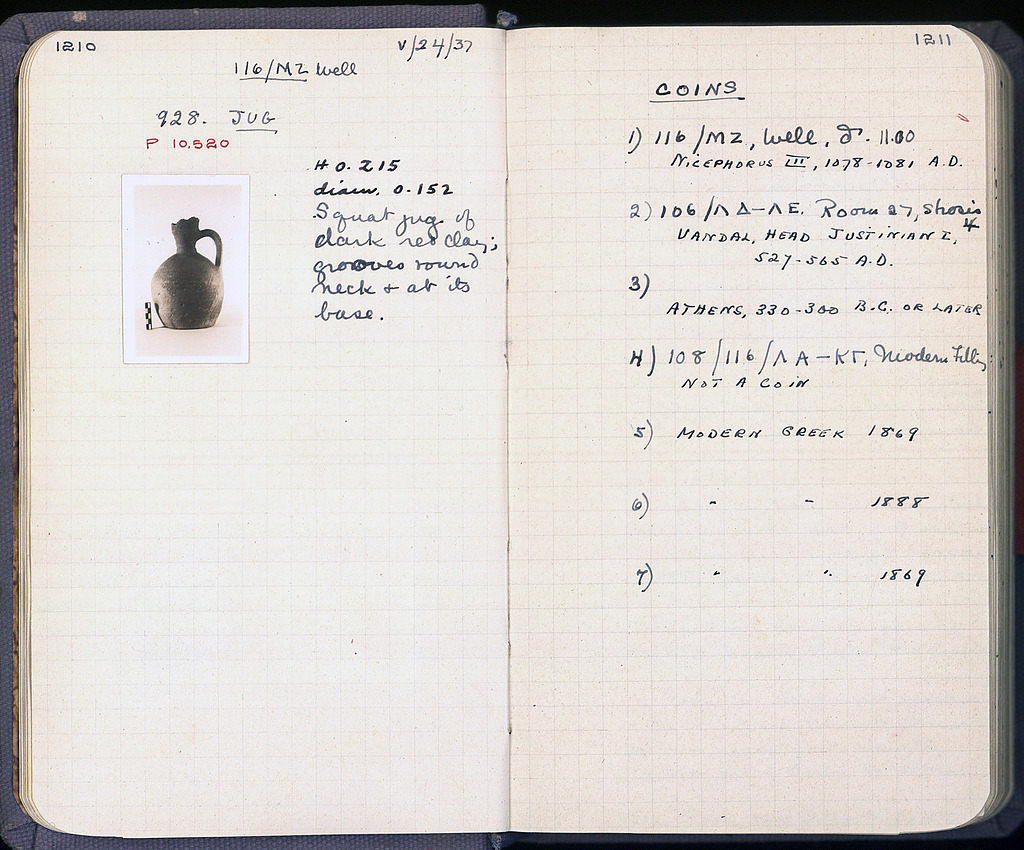 1210
V/24/37
116/MZ Well
928. JUG
P 10.520
H 0.215
diam. 0.152
Squat jug of
dark red clay;
grooves round
neck + at its
base.
1211
COINS
1) 116/MZ, Well, 11.00
NICEPHORUS III, 1078-1081 A.D.
2) 106/ΛΔ-ΛΕ. Room 27,
4
VANDAL, HEAD JUSTINIAN I,
527-565 A.D.
3)
ATHENS, 330-300 B.C. OR LATER
4) 108/116/ΛΑ-ΚΓ, Modern Filling
NOT A COIN
5) MODERN GREEK 1869
6) " " 1888
7) " " 1869